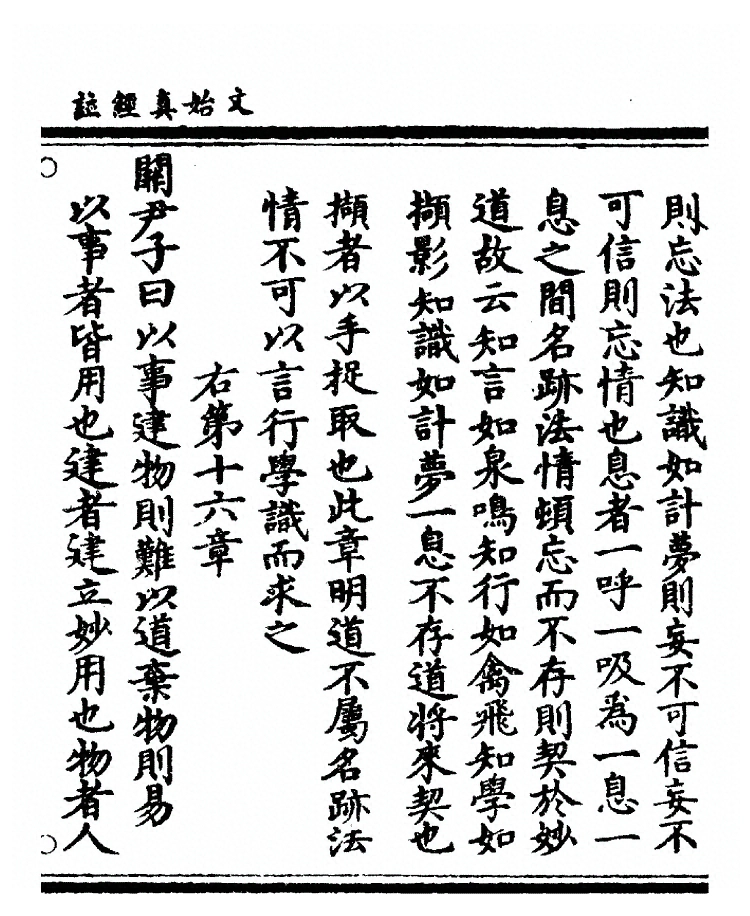 文始真經註
則忘法也知識如計夢則妄不可信妄不
可信則忘情也息者一呼一吸爲一息一
息之間名跡法情頓忘而不存則契於妙
道故云知言如泉鳴知行如禽飛知學如
擷影知識如計夢一息不存道將來契也
擷者以手捉取也此章明道不屬名跡法
情不可以言行學識而求之
右第十六章
關尹子曰以事建物則難以道棄物則易
以事者皆用也建者建立妙用也物者人